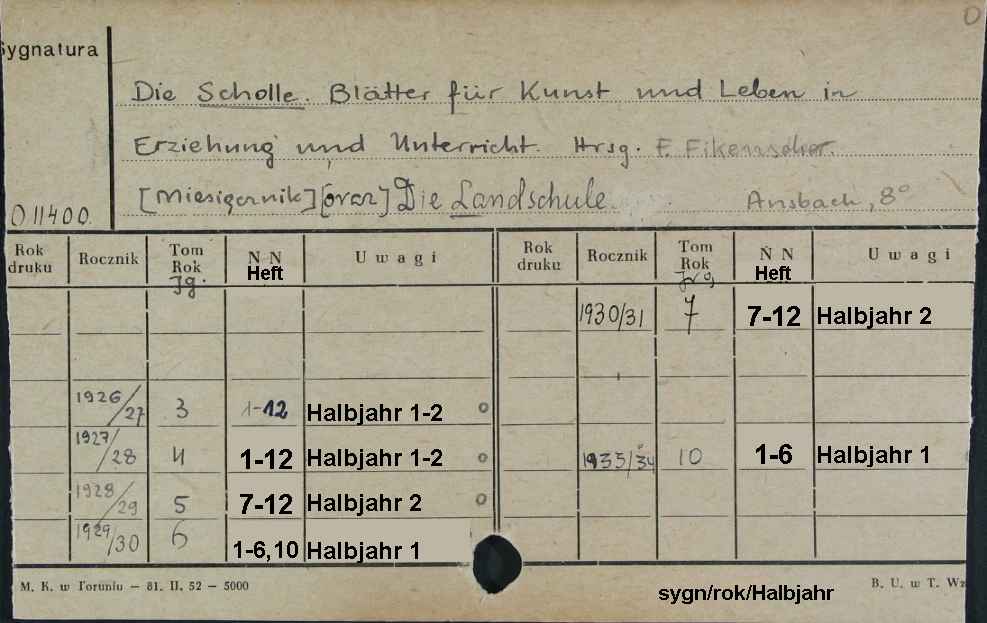 0
Sygnatura
Die Scholle. Blätter für Kunst und Leben in
Erziehung und Unterricht. Hrsg. F. Fikenscher.
[Miesięcznik] [oraz] Die Landschule.
Ansbach, 8°
O 11400.
Rok druku Rocznik Tom Rok Jg. N N Heft Uwagi
Rok druku Rocznik Tom Rok N N Heft Uwagi
1930/31 7 7-12 Halbjahr 2
1926/27 3 1-12 Halbjahr 1-2
1927/28 4 1-12 Halbjahr 1-2
1933/34 10 1-6 Halbjahr 1
1928/29 5 7-12 Halbjahr 2
1929/30 6 1-6,10 Halbjahr 1
M. K. w Toruniu — 81. II. 52 — 5000
sygn/rok/Halbjahr
B. U. w T. Wz